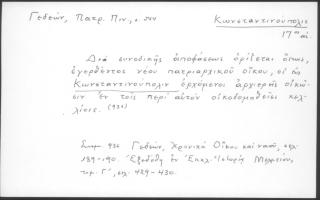 Γεδεών, Πατρ. Πιν., σ. 544
Κωνσταντινούπολις
17ος αἰ.
Διὰ συνοδικῆς ἀποφάσεως ὁρίζεται ὅπως,
ἐγερθέντος νέου πατριαρχικοῦ οἴκου, οἱ εἰς
Κωνσταντινούπολιν ἐρχόμενοι ἀρχιερῆς οἰκῶ-
σιν ἐν τοῖς περὶ αὐτὸν οἰκοδομηθεῖσι κελ-
λίοις. (936)
Σημ. 936 Γεδεών, Χρονικὰ Οἴκου καὶ ναοῦ, σελ.
189-190. Ἐξεδόθη ἐν Ἐκκλ. Ἱστορίᾳ Μελετίου,
τομ. Γ', σελ. 429-430.